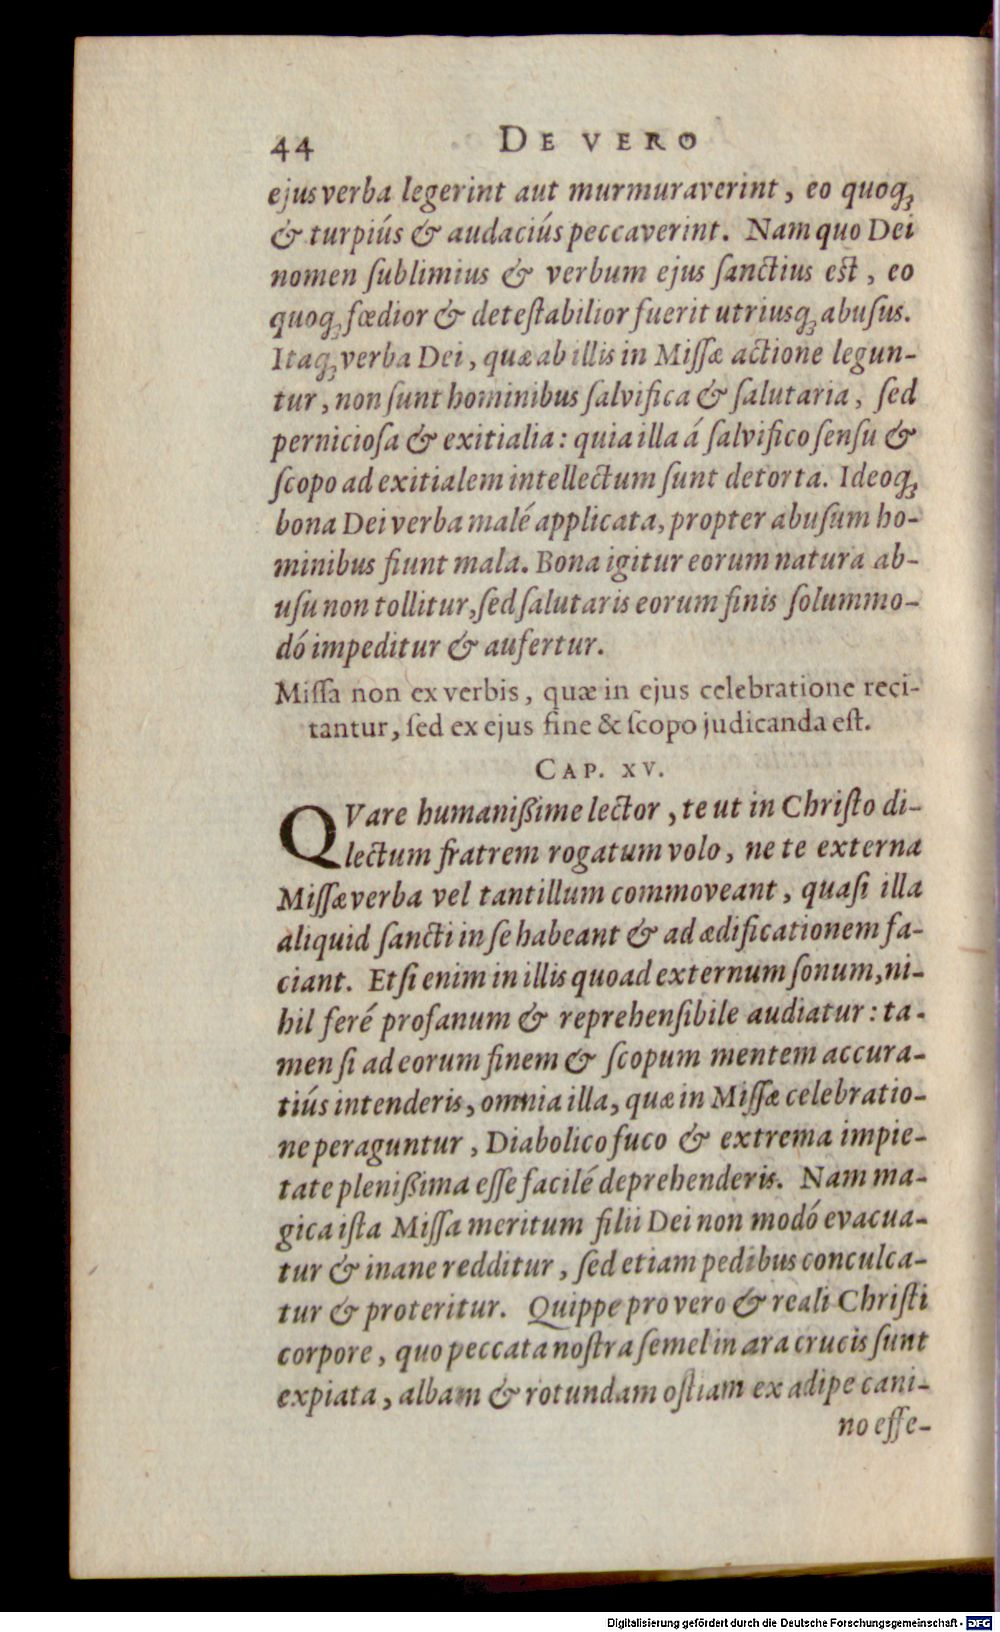 44 DE VERO
ejus verba legerint aut murmuraverint, eo quoq;
& turpiús & audaciús peccaverint. Nam quo Dei
nomen ſublimius & verbum ejus ſanctius eſt, eo
quoq; fœdior & deteſtabilior fuerit utriusq; abuſus.
Itaq; verba Dei, quæ ab illis in Miſſæ actione legun-
tur, non ſunt hominibus ſalvifica & ſalutaria, ſed
pernicioſa & exitialia: quia illa á ſalvifico ſenſu &
ſcopo ad exitialem intellectum ſunt detorta. Ideoq;
bona Dei verba malé applicata, propter abuſum ho-
minibus fiunt mala. Bona igitur eorum natura ab-
uſu non tollitur, ſed ſalutaris eorum finis ſolummo-
dó impeditur & aufertur.
Miſſa non ex verbis, quæ in ejus celebratione reci-
tantur, ſed ex ejus fine & ſcopo judicanda eſt.
CAP. XV.
QVare humanißime lector, te ut in Chriſto di-
lectum fratrem rogatum volo, ne te externa
Miſſæ verba vel tantillum commoveant, quaſi illa
aliquid ſancti in ſe habeant & ad ædificationem fa-
ciant. Etſi enim in illis quoad externum ſonum, ni-
hil feré profanum & reprehenſibile audiatur: ta-
men ſi ad eorum finem & ſcopum mentem accura-
tiús intenderis, omnia illa, quæ in Miſſæ celebratio-
ne peraguntur, Diabolico fuco & extrema impie-
tate plenißima eſſe facilé deprehenderis. Nam ma-
gica iſta Miſſa meritum filii Dei non modó evacua-
tur & inane redditur, ſed etiam pedibus conculca-
tur & proteritur. Quippe pro vero & reali Chriſti
corpore, quo peccata noſtra ſemel in ara crucis ſunt
expiata, albam & rotundam oſtiam ex adipe cani-
no effe-
Digitalisierung gefördert durch die Deutsche Forschungsgemeinschaft - DFG